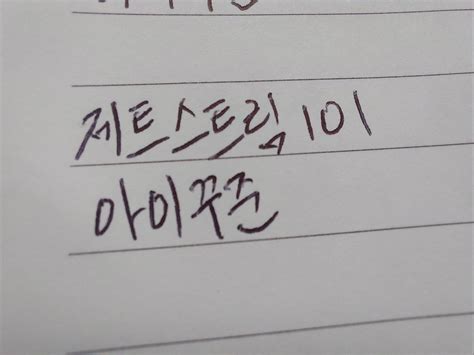 제트스트림 101
아이쭈즌